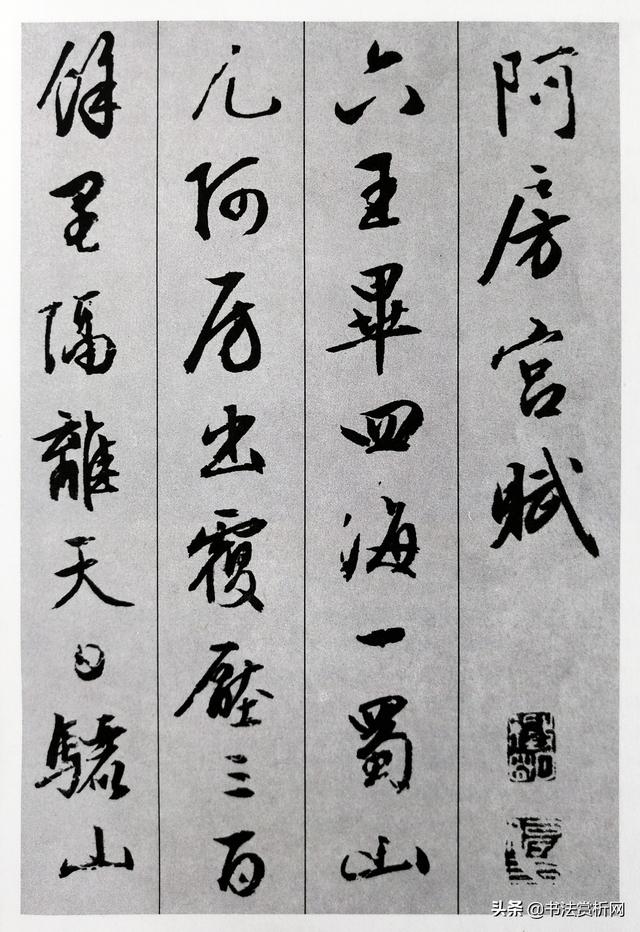 阿房宮賦
六王畢四海一蜀山
兀阿房出覆壓三百
餘里隔離天日驪山
头条 @书法赏析网